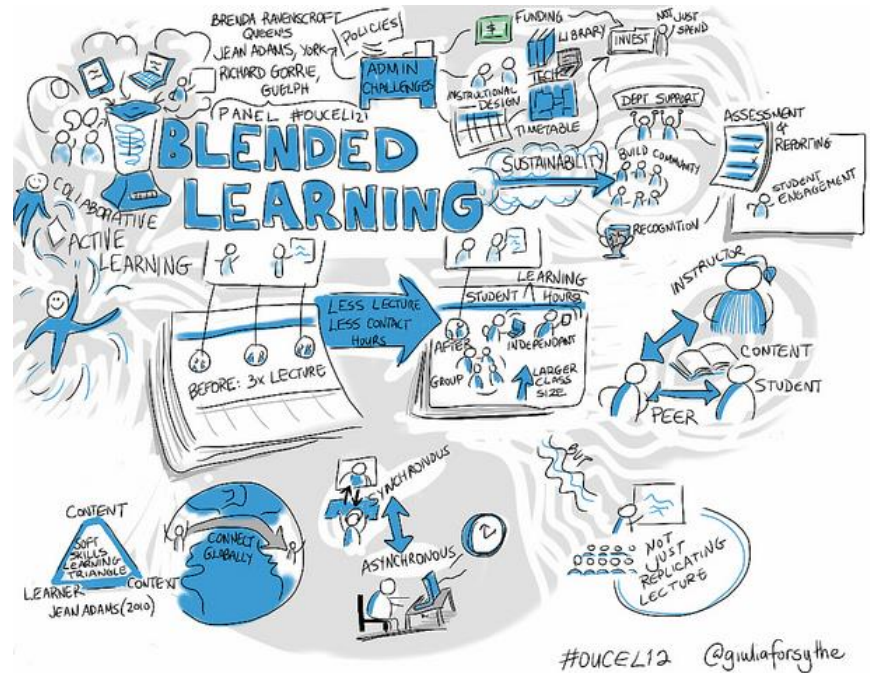 BRENDA RAVENSCROFT
QUEEN'S
JEAN ADAMS, YORK
RICHARD GORRIE,
GUELPH
PANEL #OUCEL12
BLENDED
LEARNING
POLICIES
ADMIN
CHALLENGES
FUNDING
$
LIBRARY
TECH
INSTRUCTIONAL
DESIGN
TIMETABLE
INVEST
NOT JUST
SPEND
SUSTAINABILITY
DEPT SUPPORT
BUILD COMMUNITY
RECOGNITION
ASSESSMENT
&
REPORTING
STUDENT
ENGAGEMENT
COLLABORATIVE
ACTIVE
LEARNING
BEFORE: 3X LECTURE
LESS LECTURE
LESS CONTACT
HOURS
LEARNING
STUDENT HOURS
AFTER
INDEPENDANT
GROUP
LARGER
CLASS
SIZE
INSTRUCTOR
CONTENT
STUDENT
PEER
CONTENT
SOFT
SKILLS
LEARNING
TRIANGLE
LEARNER
CONTEXT
JEAN ADAMS (2010)
CONNECT
GLOBALLY
SYNCHRONOUS
ASYNCHRONOUS
BUT
NOT
JUST
REPLICATING
LECTURE
#OUCEL12 @giuliaforsythe